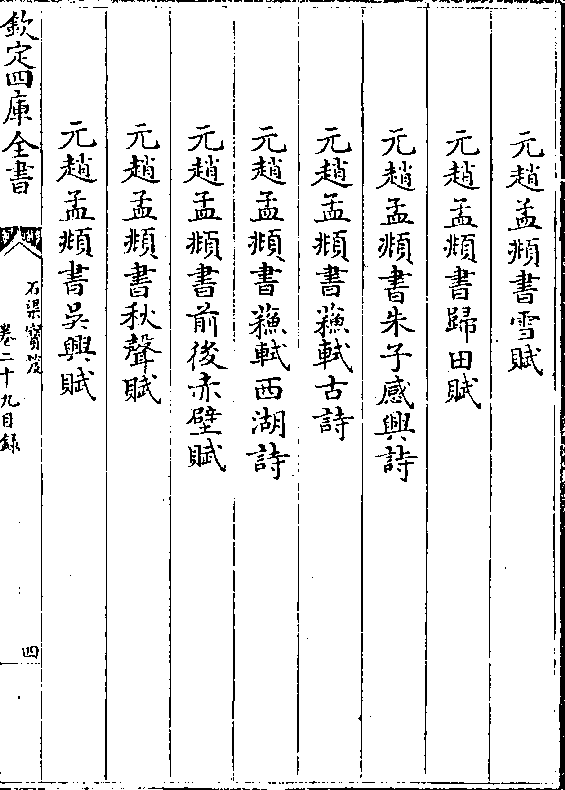 元趙孟頫書雪賦
元趙孟頫書歸田賦
元趙孟頫書朱子感興詩
元趙孟頫書蘓軾古詩
元趙孟頫書蘓軾西湖詩
元趙孟頫書前後赤壁賦
元趙孟頫書秋聲賦
元趙孟頫書吳興賦
欽定四庫全書
石渠寶笈
卷二十九目錄
四